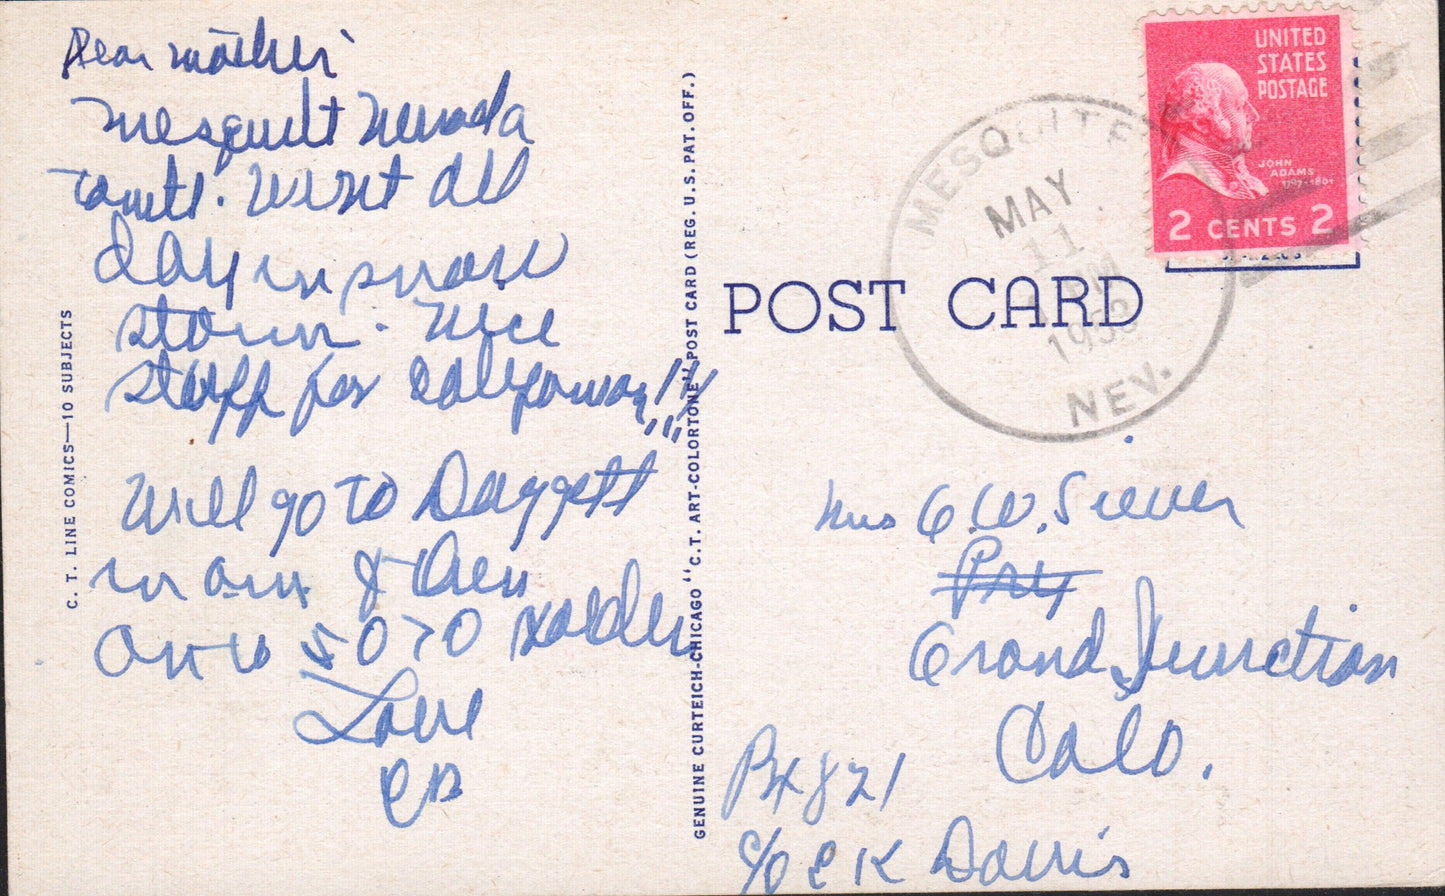 Dear Mother
Mesquit Nevada
tonite. Went all
day in snow
storm. Nice
stuff for
Will go to Daggett
in am & then
on to 5070
Love
C. T. LINE COMICS—10 SUBJECTS
GENUINE CURTEICH-CHICAGO "C.T. ART-COLORTONE" POST CARD (REG. U.S. PAT. OFF.)
UNITED
STATES
POSTAGE
JOHN
ADAMS
1797-1801
2 CENTS 2
MESQUITE
MAY
11
PM
1953
NEV.
POST CARD
Mrs G.W. Siever
Grand Junction
Colo.
Bx 821
c/o C K Davis